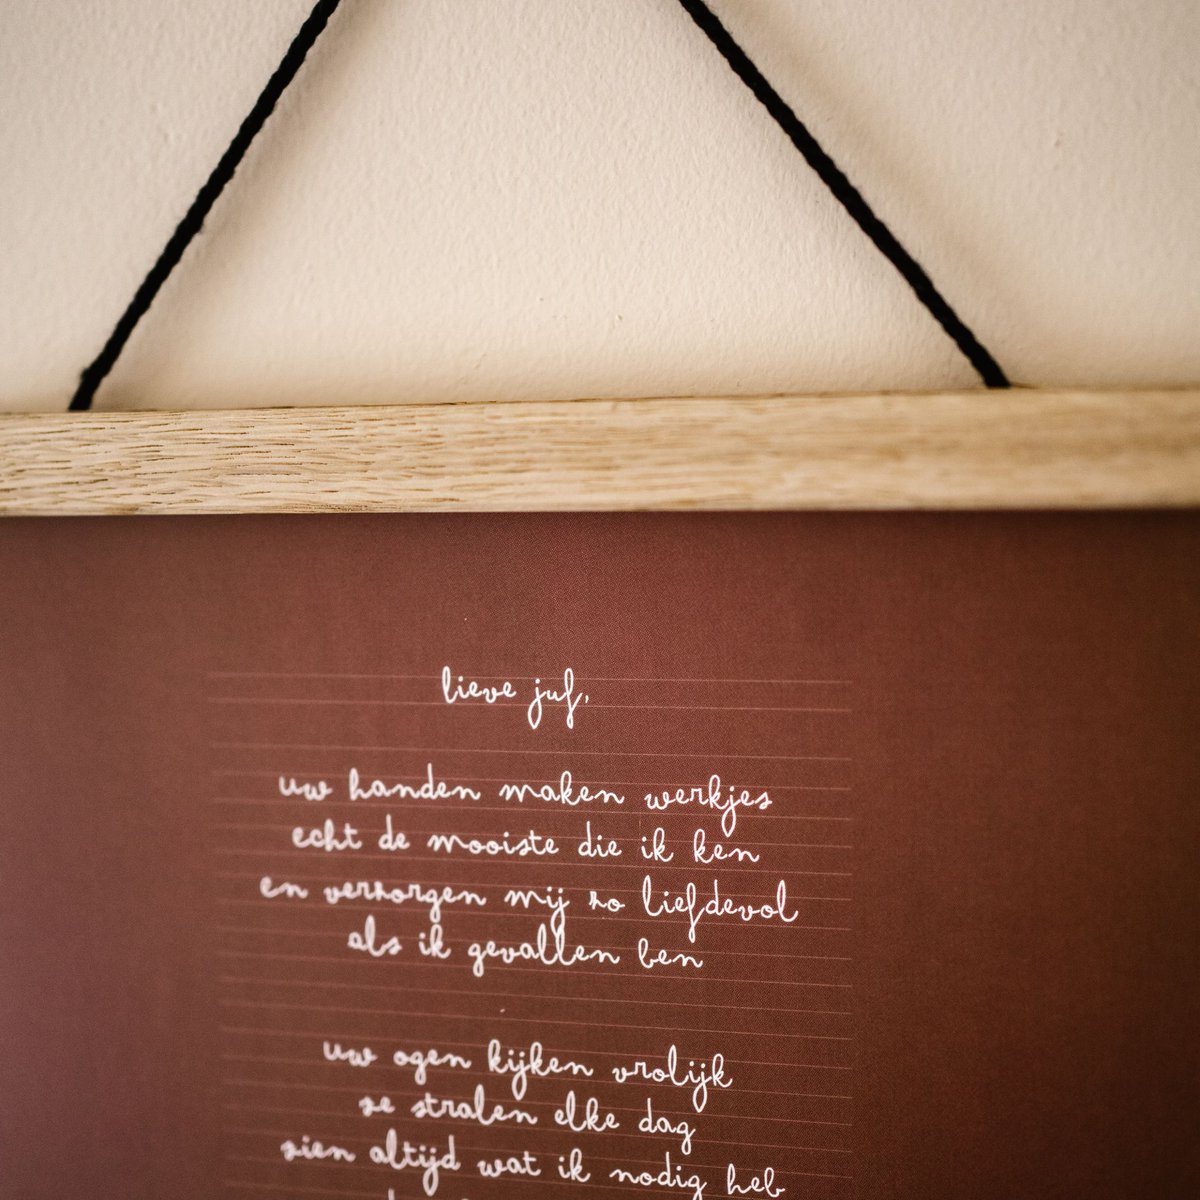 lieve juf,
uw handen maken werkjes
echt de mooiste die ik ken
en verzorgen mij zo liefdevol
als ik gevallen ben
uw ogen kijken vrolijk
ze stralen elke dag
zien altijd wat ik nodig heb